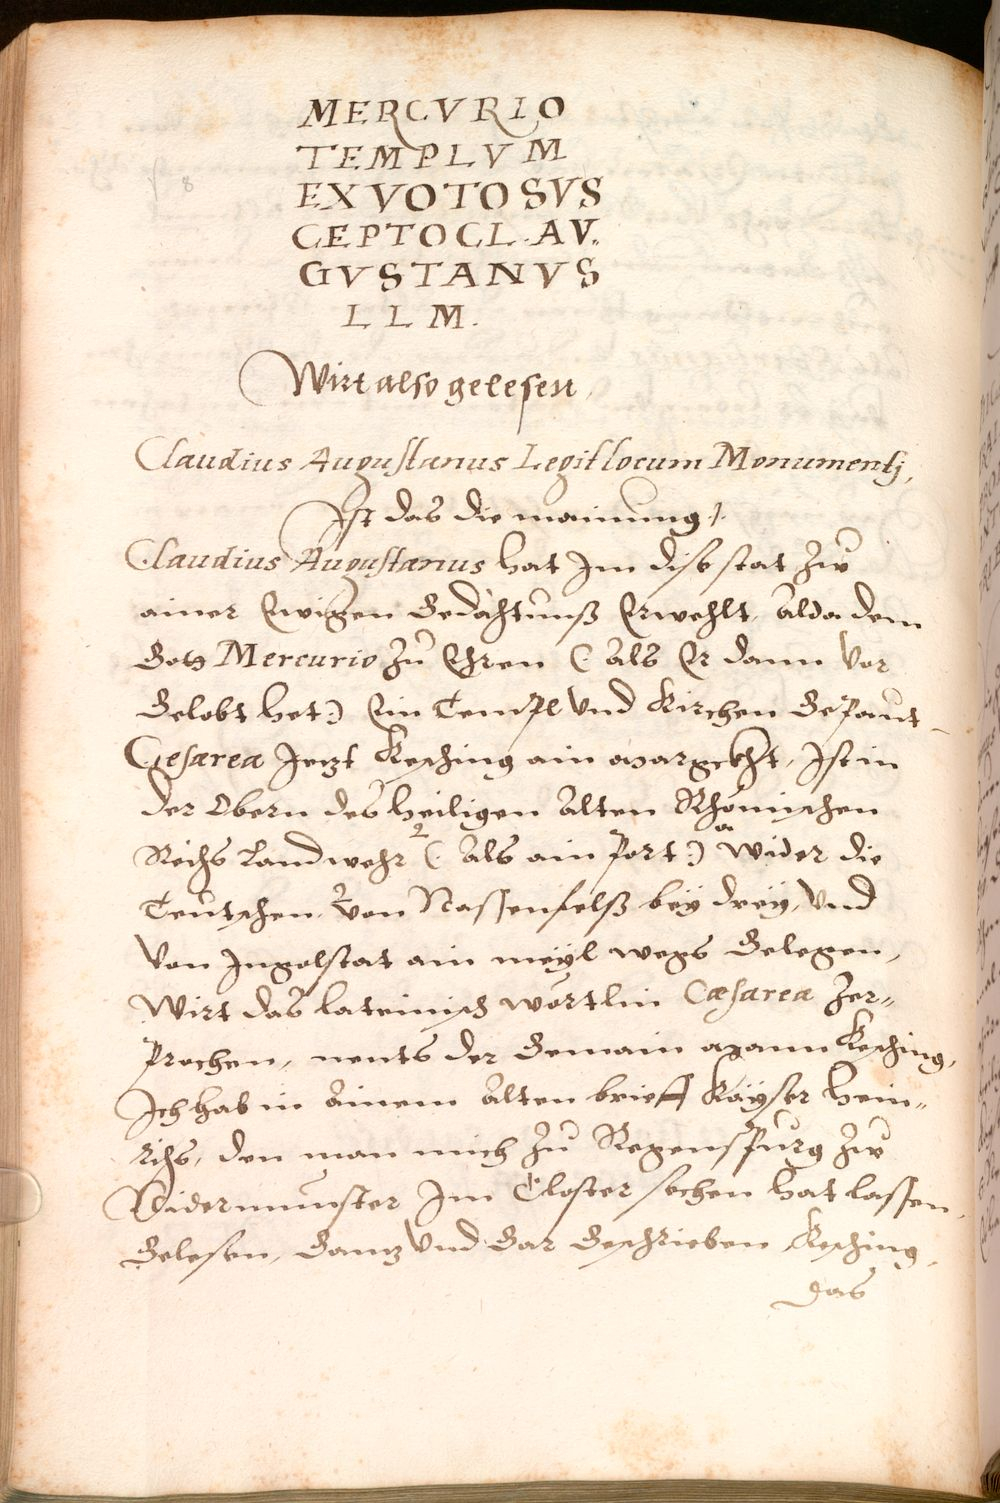 MERCVRIO
TEMPLVM
EX VOTO SVS
CEPTO CL. AV.
GVSTANVS
L L M.
Wirt also gelesen,
Claudius Augustanus Legit locum Monumentj,
Ist das die mainung /.
Claudius Augustanus hat Im dise stat zw
ainer Ewigen Gedächtnuß Erwehlt, alda dem
Gott Mercurio zu Ehren (: als Er dann Vor
Gelobt het:) Ein Templ Vnd Kirchen Gepaut
Cesarea Jetzt Kesching ain Margckht, Ist in
der Obern des heiligen alten Rhömischen
Reichs Landwehr (: als ain Port:) wider die
Teutschen, Von Nassenfelß bey drey, Vnd
Von Ingolstat ain meyl wegs Gelegen,
Wirt das lateinisch wörtlin Cæsarea zer=
prochen, nents der Gemain Mann Kesching,
Ich hab in ainem alten brieff Kayser Hein=
richs, den man mich zu Regenspurg zw
Nidermunster Im Closter sechen hat lassen,
Gelesen, Gantz Vnd Gar Geschrieben Kesching,
das